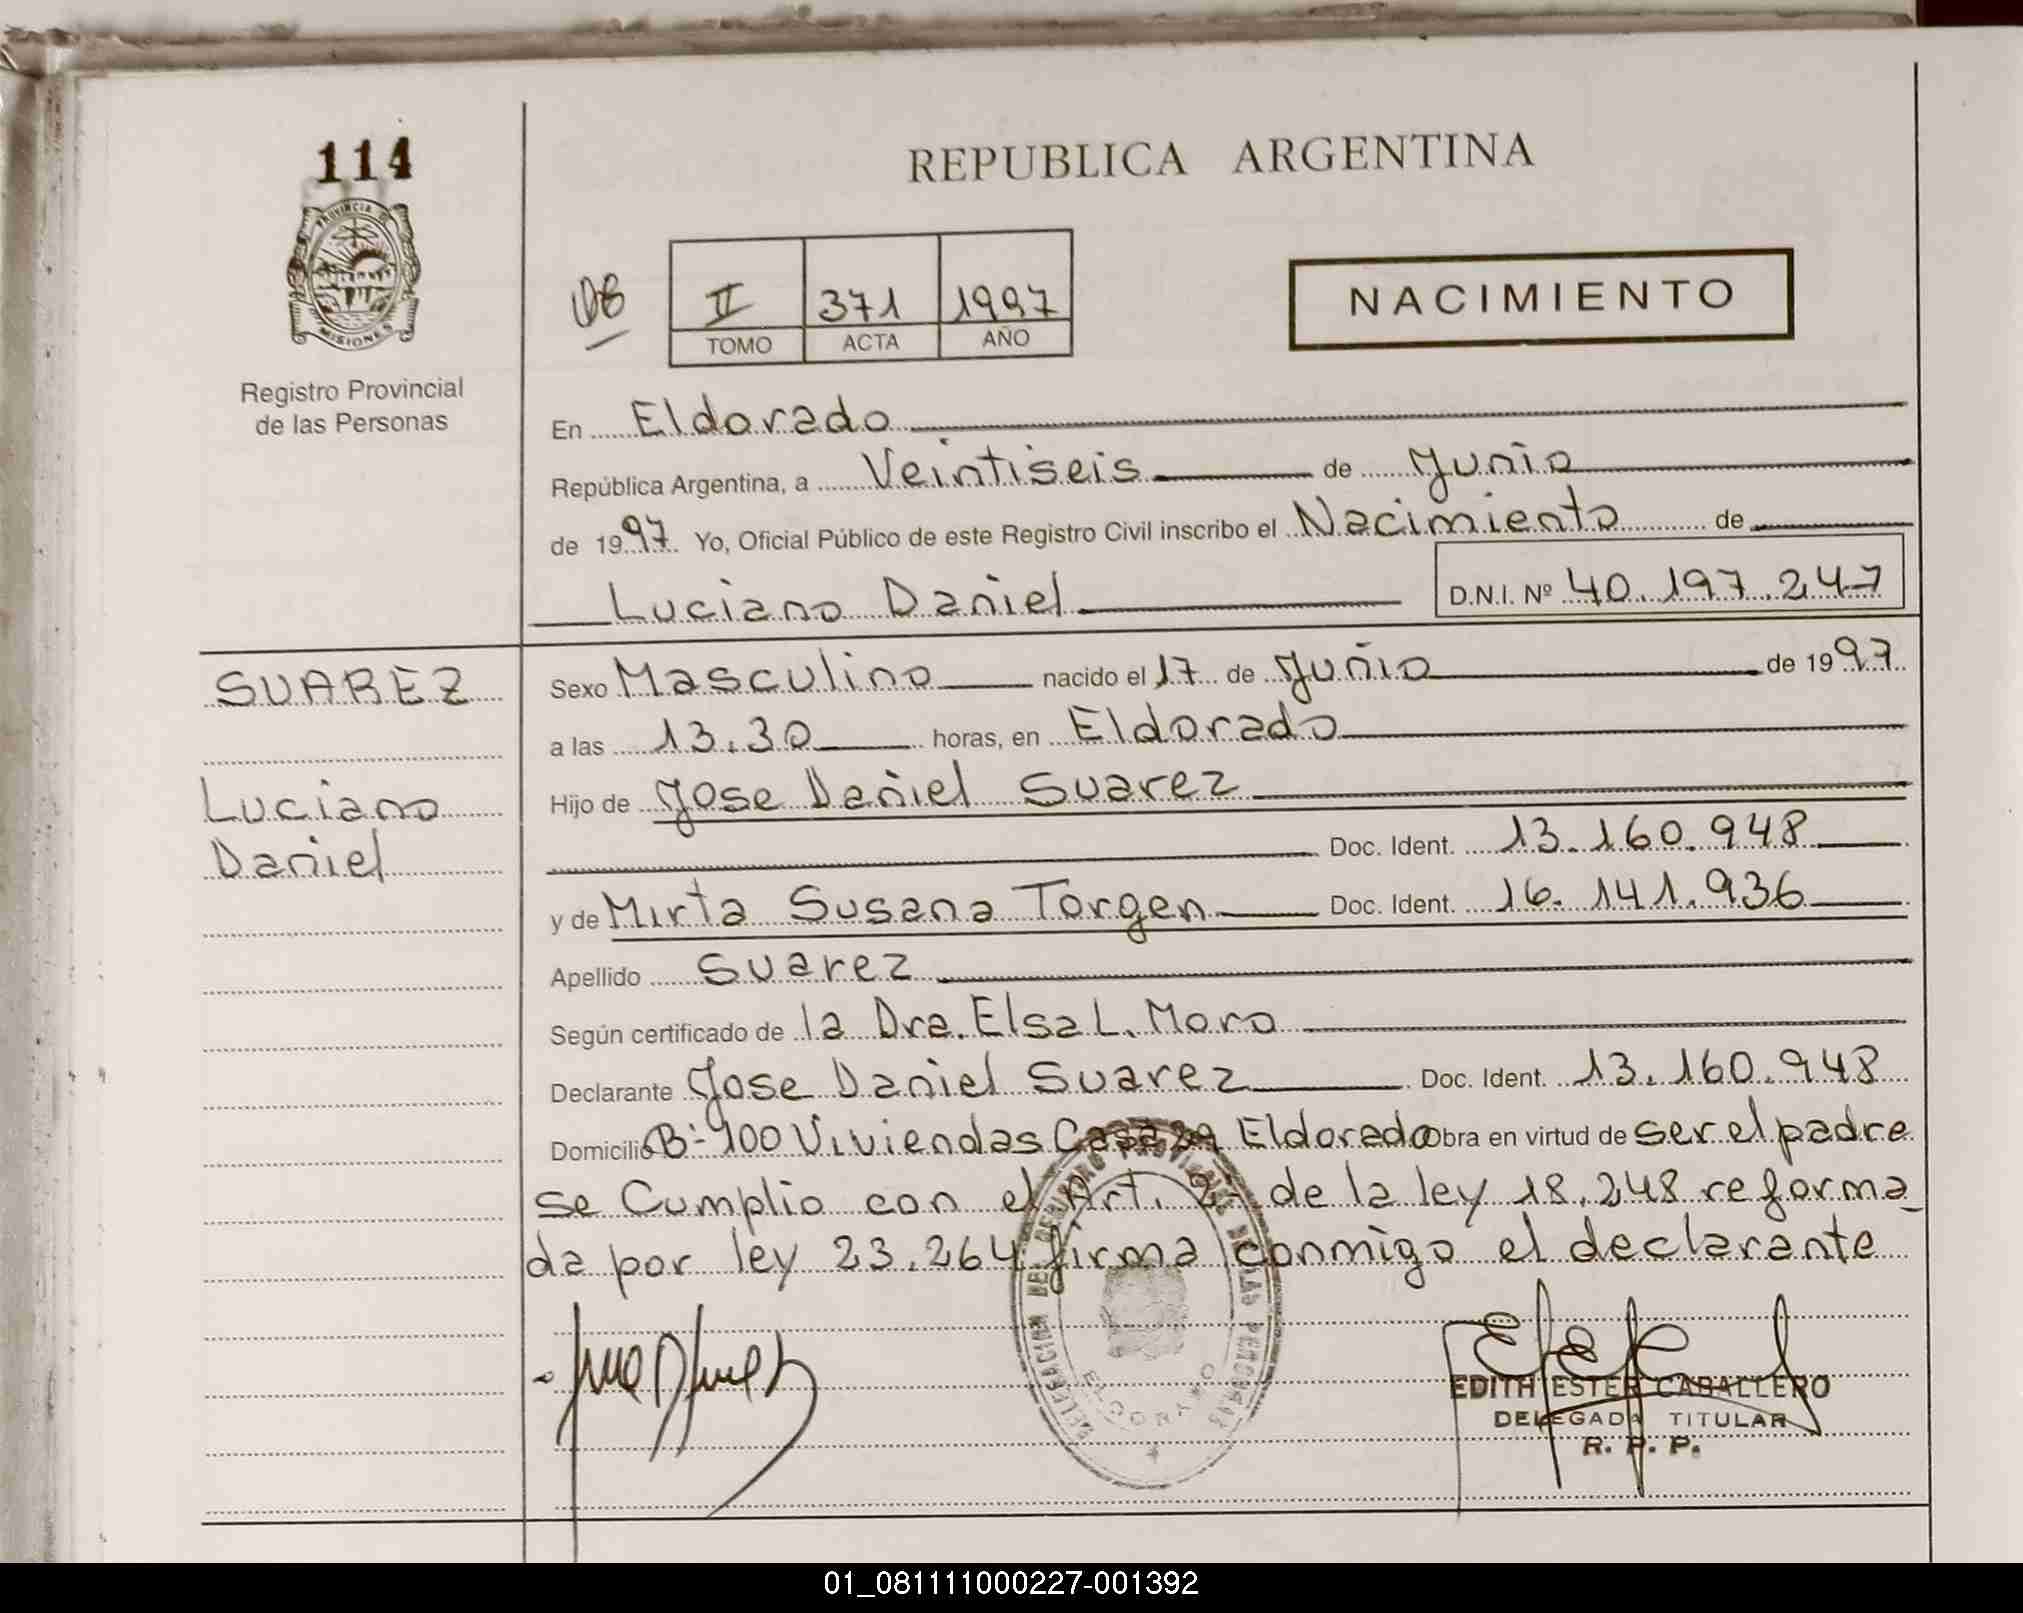 114
PROVINCIA DE
MISIONES
Registro Provincial
de las Personas
REPUBLICA ARGENTINA
II 371 1997
TOMO ACTA AÑO
NACIMIENTO
En Eldorado
República Argentina, a Veintiseis de Junio
de 1997. Yo, Oficial Público de este Registro Civil inscribo el Nacimiento de
Luciano Daniel D.N.I. Nº 40.197.247
SUAREZ
Luciano
Daniel
Sexo Masculino nacido el 17 de Junio de 1997
a las 13.30 horas, en Eldorado
Hijo de Jose Daniel Suarez
Doc. Ident. 13.160.948
y de Mirta Susana Torgen Doc. Ident. 16.141.936
Apellido Suarez
Según certificado de la Dra. Elsa L. Moro
Declarante Jose Daniel Suarez Doc. Ident. 13.160.948
Domicilio Bº 100 Viviendas Casa Eldorado Obra en virtud de ser el padre
se Cumplio con el Art. 2- de la ley 18.248 reforma_
da por ley 23.264 firma conmigo el declarante
DELEGACION DEL REGISTRO PROVINCIAL DE LAS PERSONAS
ELDORADO
EDITH ESTER CABALLERO
DELEGADA TITULAR
R. P. P.
01_081111000227-001392